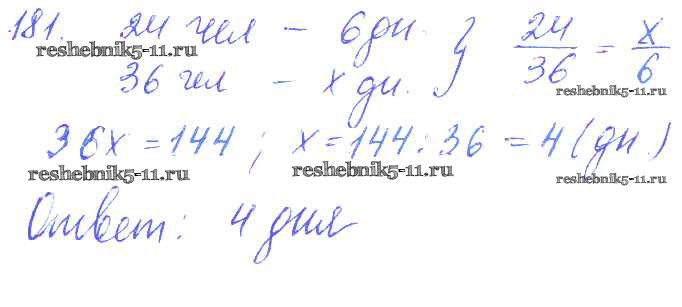 181. 24 чел – 6 дн. } 24/36 = x/6
reshebnik5-11.ru
36 чел – x дн.
reshebnik5-11.ru
36x = 144 ; x = 144 : 36 = 4 (дн.)
reshebnik5-11.ru reshebnik5-11.ru reshebnik5-11.ru
Ответ: 4 дня